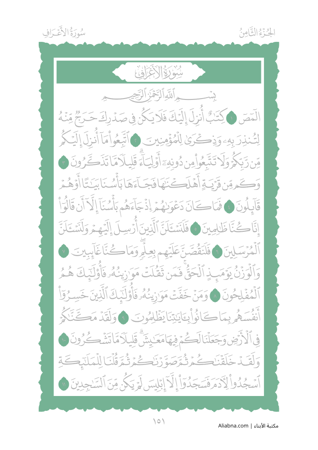 الجُزْءُ الثَّامِنُ
سُورَةُ الأَعْرَافِ
سُورَةُ الأَعْرَافِ
بِسْمِ اللَّهِ الرَّحْمَٰنِ الرَّحِيمِ
الٓمٓصٓ ١ كِتَٰبٌ أُنزِلَ إِلَيْكَ فَلَا يَكُن فِى صَدْرِكَ حَرَجٌ مِّنْهُ
لِتُنذِرَ بِهِۦ وَذِكْرَىٰ لِلْمُؤْمِنِينَ ٢ ٱتَّبِعُوا۟ مَآ أُنزِلَ إِلَيْكُم
مِّن رَّبِّكُمْ وَلَا تَتَّبِعُوا۟ مِن دُونِهِۦٓ أَوْلِيَآءَ قَلِيلًا مَّا تَذَكَّرُونَ ٣
وَكَم مِّن قَرْيَةٍ أَهْلَكْنَٰهَا فَجَآءَهَا بَأْسُنَا بَيَٰتًا أَوْ هُمْ
قَآئِلُونَ ٤ فَمَا كَانَ دَعْوَىٰهُمْ إِذْ جَآءَهُم بَأْسُنَآ إِلَّآ أَن قَالُوٓا۟
إِنَّا كُنَّا ظَٰلِمِينَ ٥ فَلَنَسْـَٔلَنَّ ٱلَّذِينَ أُرْسِلَ إِلَيْهِمْ وَلَنَسْـَٔلَنَّ
ٱلْمُرْسَلِينَ ٦ فَلَنَقُصَّنَّ عَلَيْهِم بِعِلْمٍ وَمَا كُنَّا غَآئِبِينَ ٧
وَٱلْوَزْنُ يَوْمَئِذٍ ٱلْحَقُّ فَمَن ثَقُلَتْ مَوَٰزِينُهُۥ فَأُو۟لَٰٓئِكَ هُمُ
ٱلْمُفْلِحُونَ ٨ وَمَنْ خَفَّتْ مَوَٰزِينُهُۥ فَأُو۟لَٰٓئِكَ ٱلَّذِينَ خَسِرُوٓا۟
أَنفُسَهُم بِمَا كَانُوا۟ بِـَٔايَٰتِنَا يَظْلِمُونَ ٩ وَلَقَدْ مَكَّنَّٰكُمْ
فِى ٱلْأَرْضِ وَجَعَلْنَا لَكُمْ فِيهَا مَعَٰيِشَ قَلِيلًا مَّا تَشْكُرُونَ ١٠
وَلَقَدْ خَلَقْنَٰكُمْ ثُمَّ صَوَّرْنَٰكُمْ ثُمَّ قُلْنَا لِلْمَلَٰٓئِكَةِ
ٱسْجُدُوا۟ لِـَٔادَمَ فَسَجَدُوٓا۟ إِلَّآ إِبْلِيسَ لَمْ يَكُن مِّنَ ٱلسَّٰجِدِينَ ١١
١٥١
مكتبة الأبناء | Aliabna.com